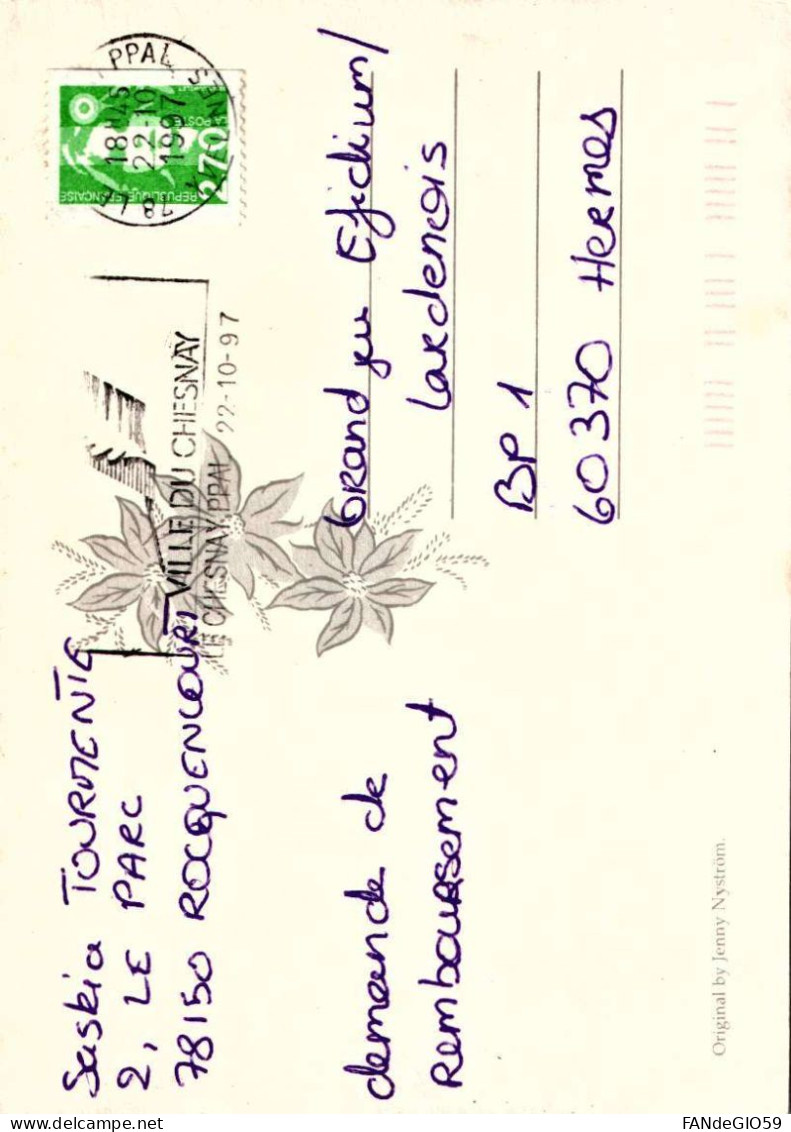 Saskia TOURMENTE
2, LE PARC
78150 ROCQUENCOURT
demande de
Remboursement
VILLE DU CHESNAY
LE CHESNAY PPAL 22-10-97
PPAL
18H45
22-10
1997
78 LE
2,70
LA POSTE
REPUBLIQUE FRANÇAISE
Grand jeu Efidium/
Lardenois
BP 1
60370 Hermes
Original by Jenny Nyström.
FANdeGIO59